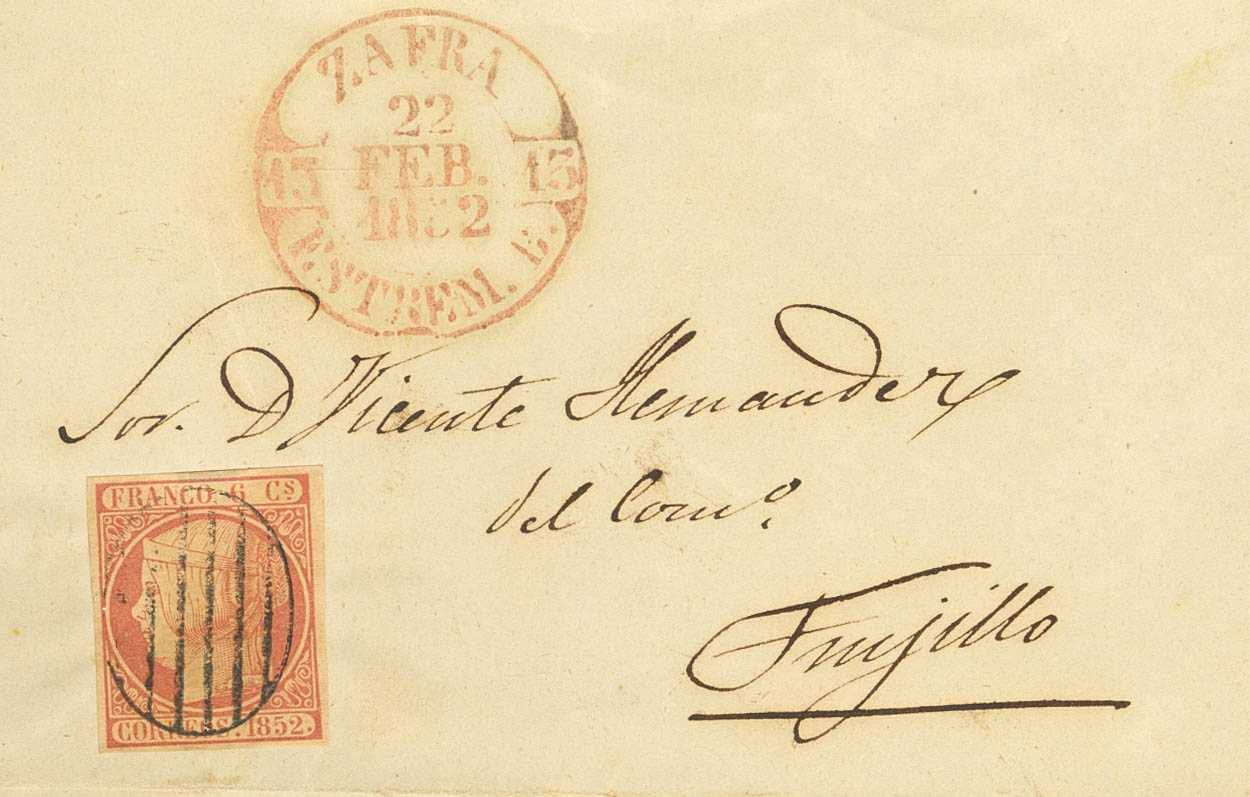 ZAFRA
22
13 FEB. 13
1852
ESTREM. B.
Sor. D Vicente Hernandez
del Como.
Trujillo
FRANCO 6 Cs
CORREOS. 1852.